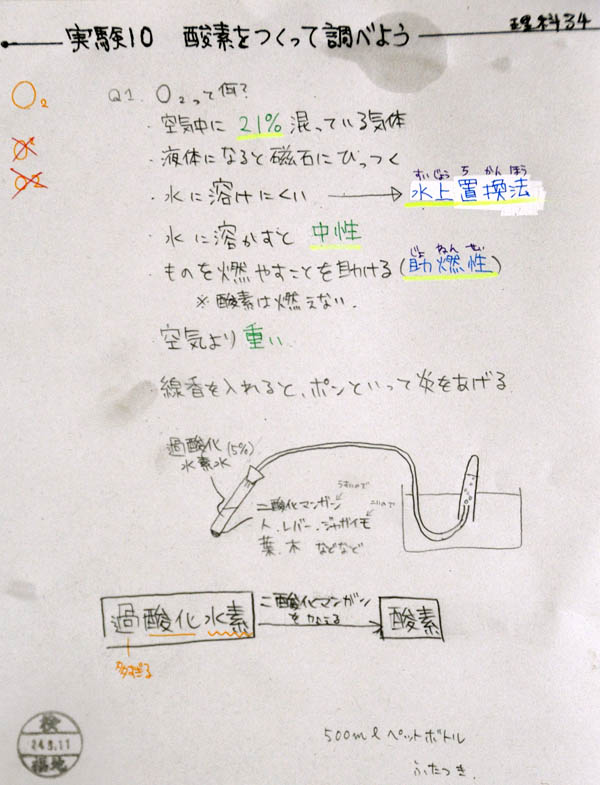 理科34
実験10 酸素をつくって調べよう
O₂
Q1. O₂って何?
・空気中に 21% 混っている気体
・液体になると磁石にひっつく
・水に溶けにくい → 水上置換法
すい じょう ち かん ほう
・水に溶かすと 中性
・ものを燃やすことを助ける(助燃性)
じょ ねん せい
※酸素は燃えない.
・空気より重い.
・線香を入れると、ポンといって炎をあげる
過酸化水素水 (5%)
二酸化マンガン
人、レバー、ジャガイモ
葉、木 などなど
過酸化水素 二酸化マンガンを加える 酸素
多すぎる
検
24.9.11
福地
500ml ペットボトル
ふたつき.